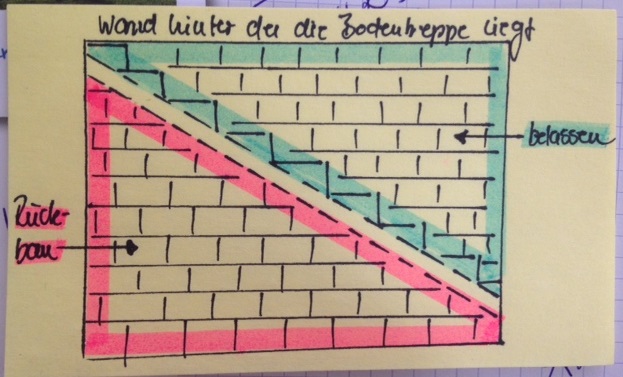 Wand hinter der die Bodentreppe liegt
belassen
Rück-
bau